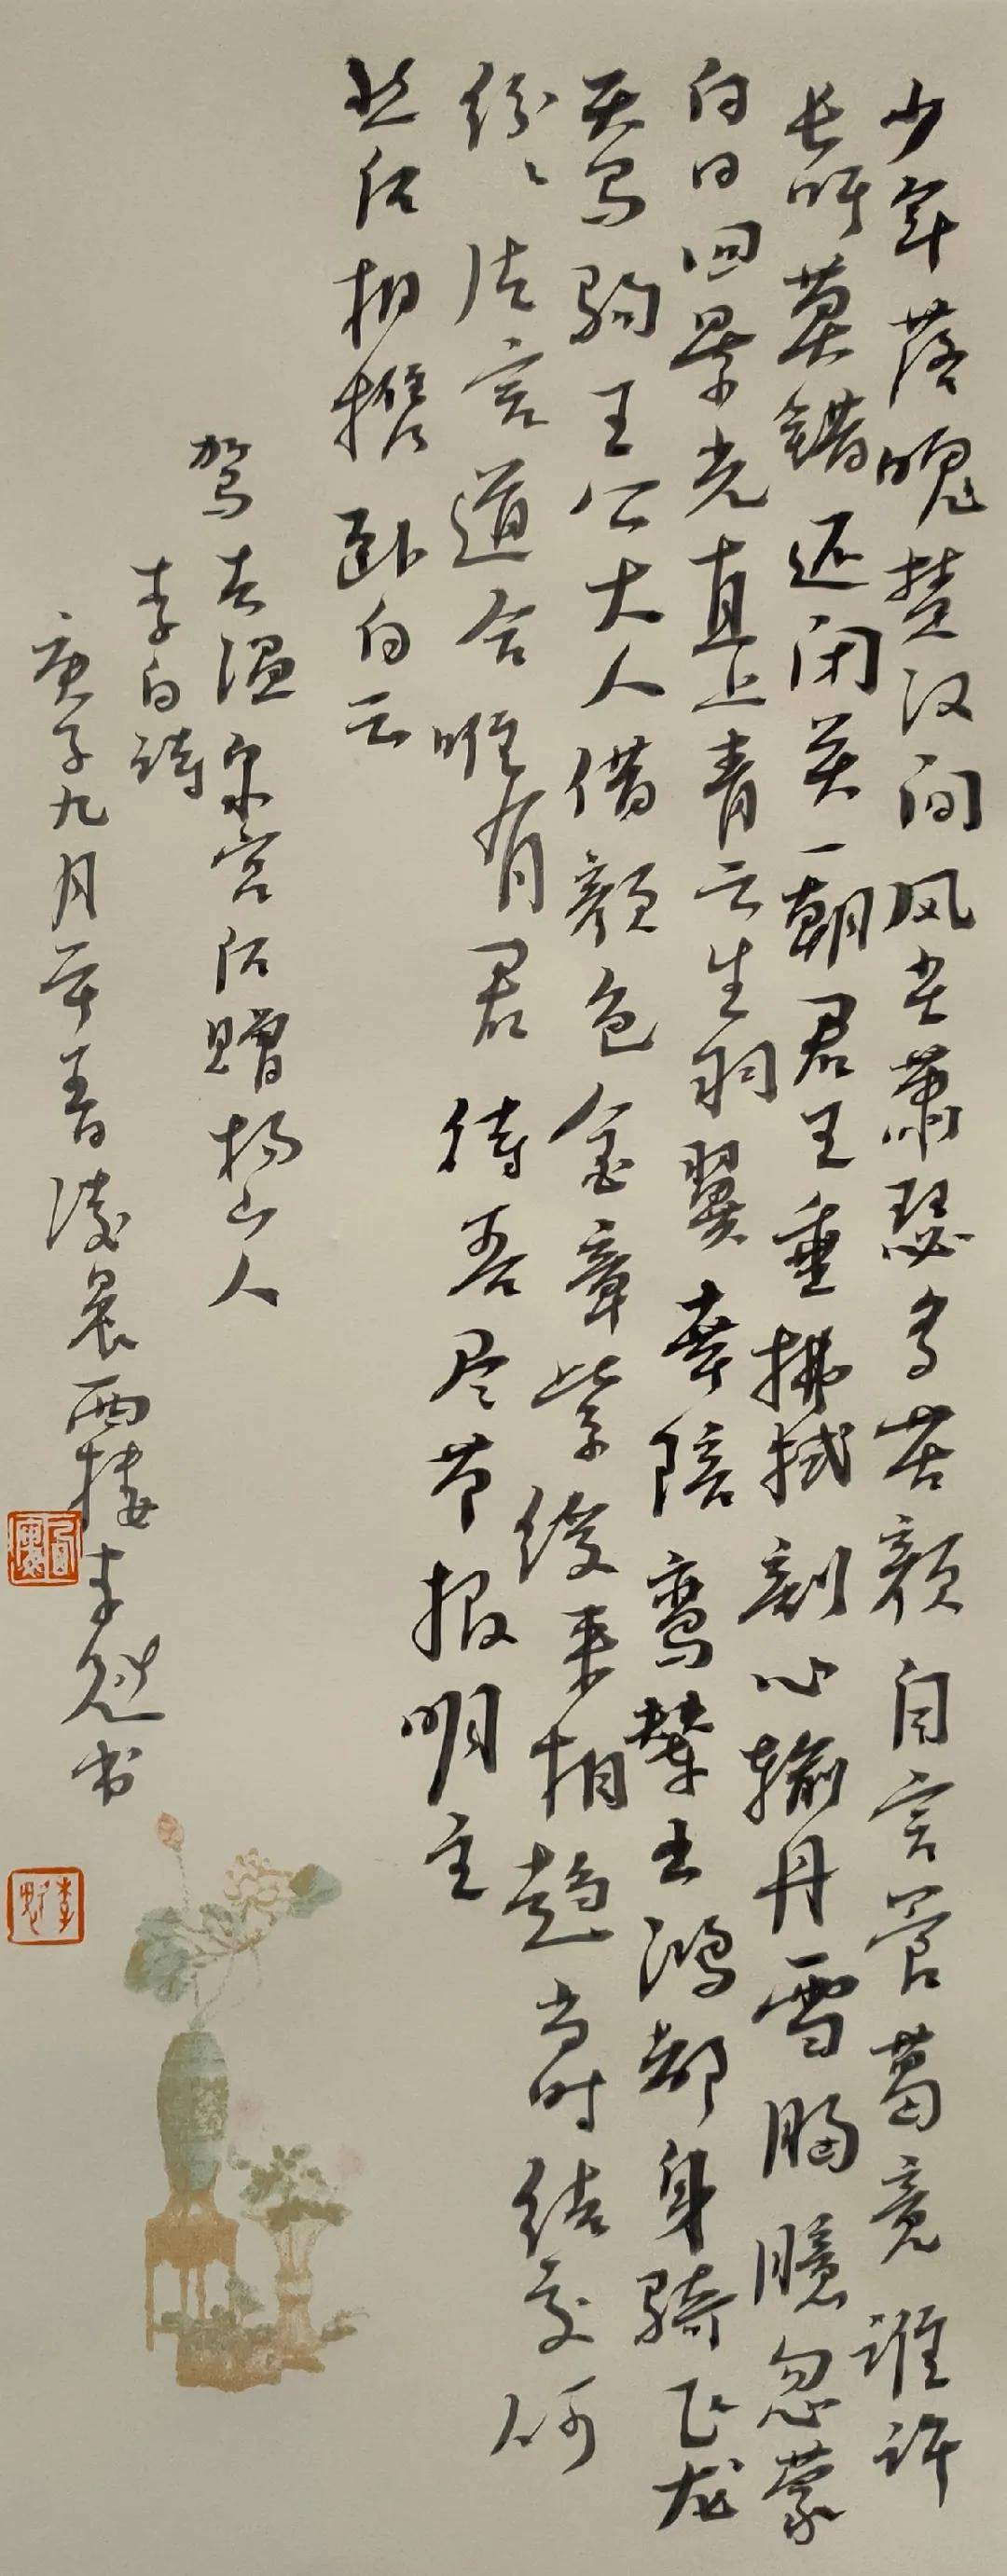 少年落魄楚汉间风尘萧瑟多苦颜自言管葛竟谁许
长吁莫错还闭关一朝君王垂拂拭剖心输丹雪胸臆忽蒙
白日回景光直上青云生羽翼幸陪鸾辇出鸿都身骑飞龙
天马驹王公大人借颜色金章紫绶来相趋当时结交何
纷纷片言道合唯有君待吾尽节报明主
然后相携卧白云
驾去温泉宫后赠杨山人
李白诗
庚子九月凌晨西楼李书